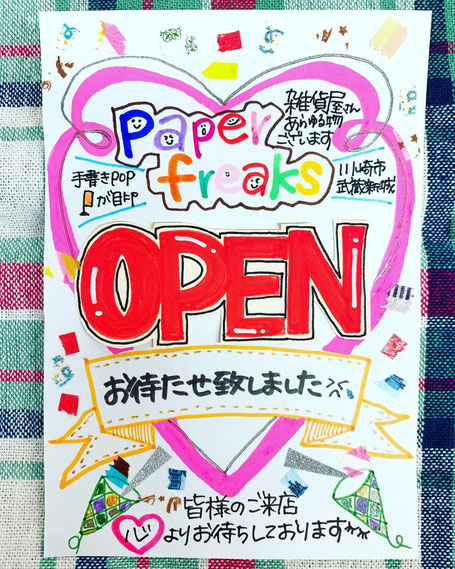 paper
freaks
雑貨屋さん
あらゆる物
ございます
手書きPOP
が目印
川崎市
武蔵新城
OPEN
お待たせ致しました
皆様のご来店
心よりお待ちしております